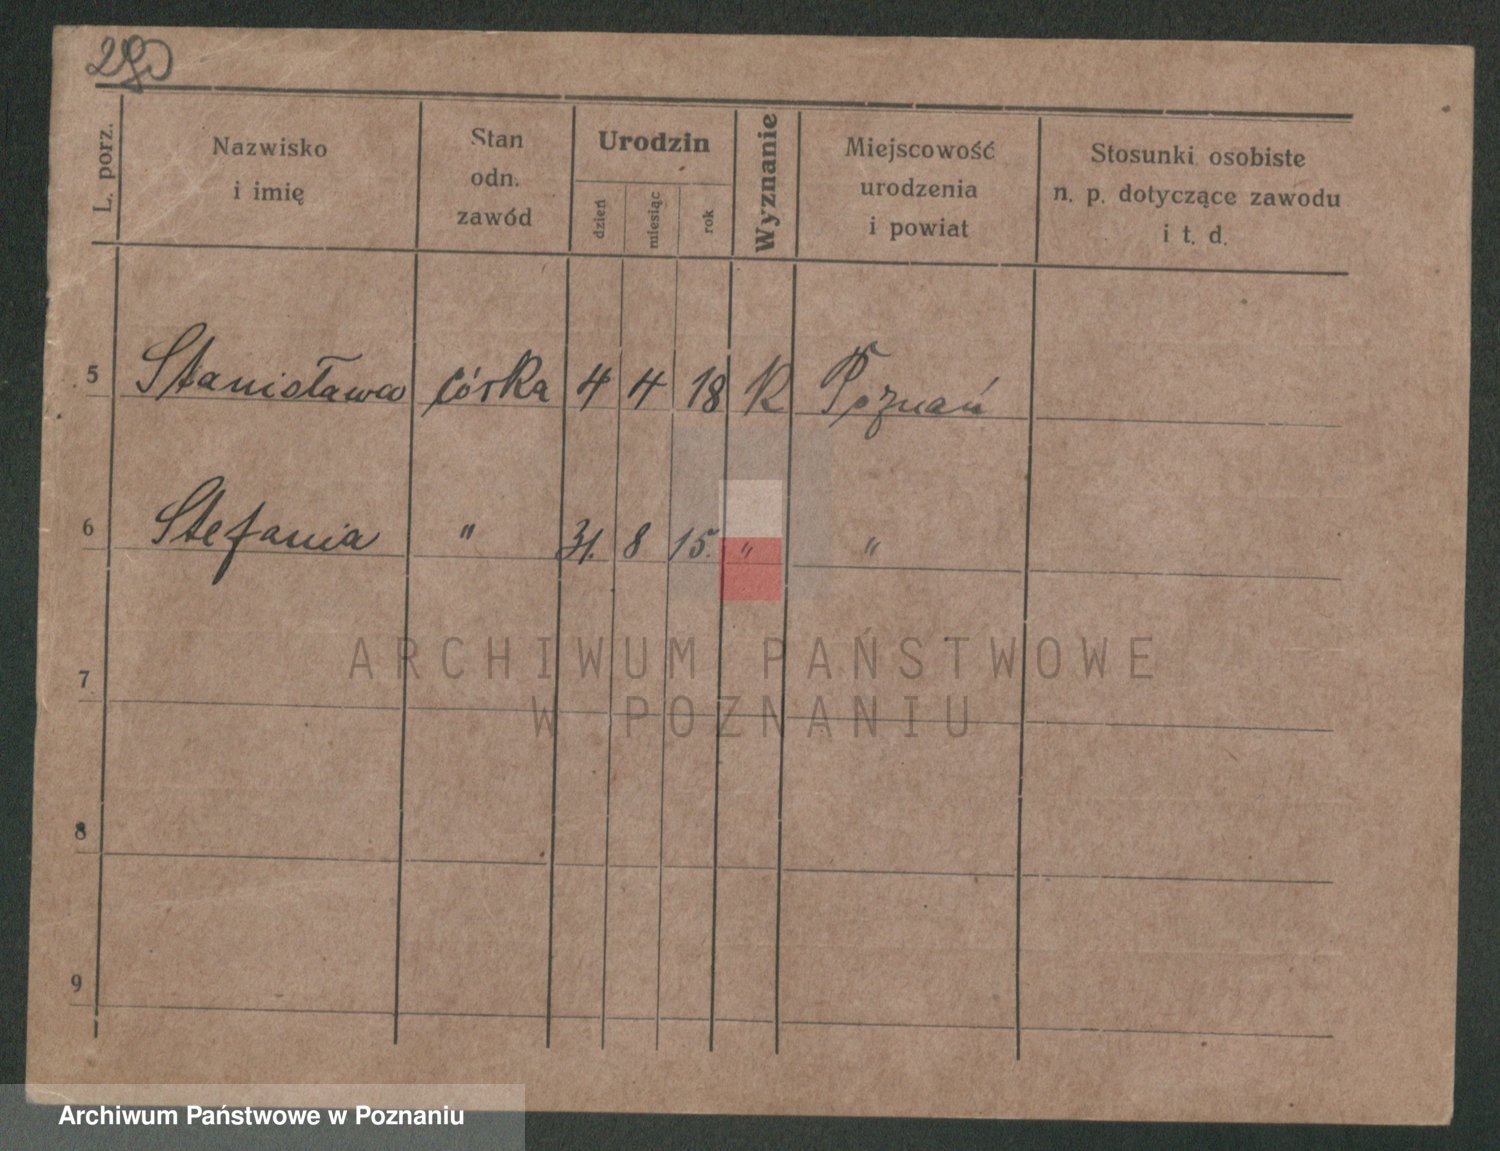 280
L. porz.
Nazwisko
i imię
Stan
odn.
zawód
Urodzin
dzień
miesiąc
rok
Wyznanie
Miejscowość
urodzenia
i powiat
Stosunki osobiste
n. p. dotyczące zawodu
i t. d.
5 Stanisława córka 4 4 18 K Poznań
6 Stefania " 31. 8 15. " "
7
8
9
ARCHIWUM PAŃSTWOWE
W POZNANIU
Archiwum Państwowe w Poznaniu